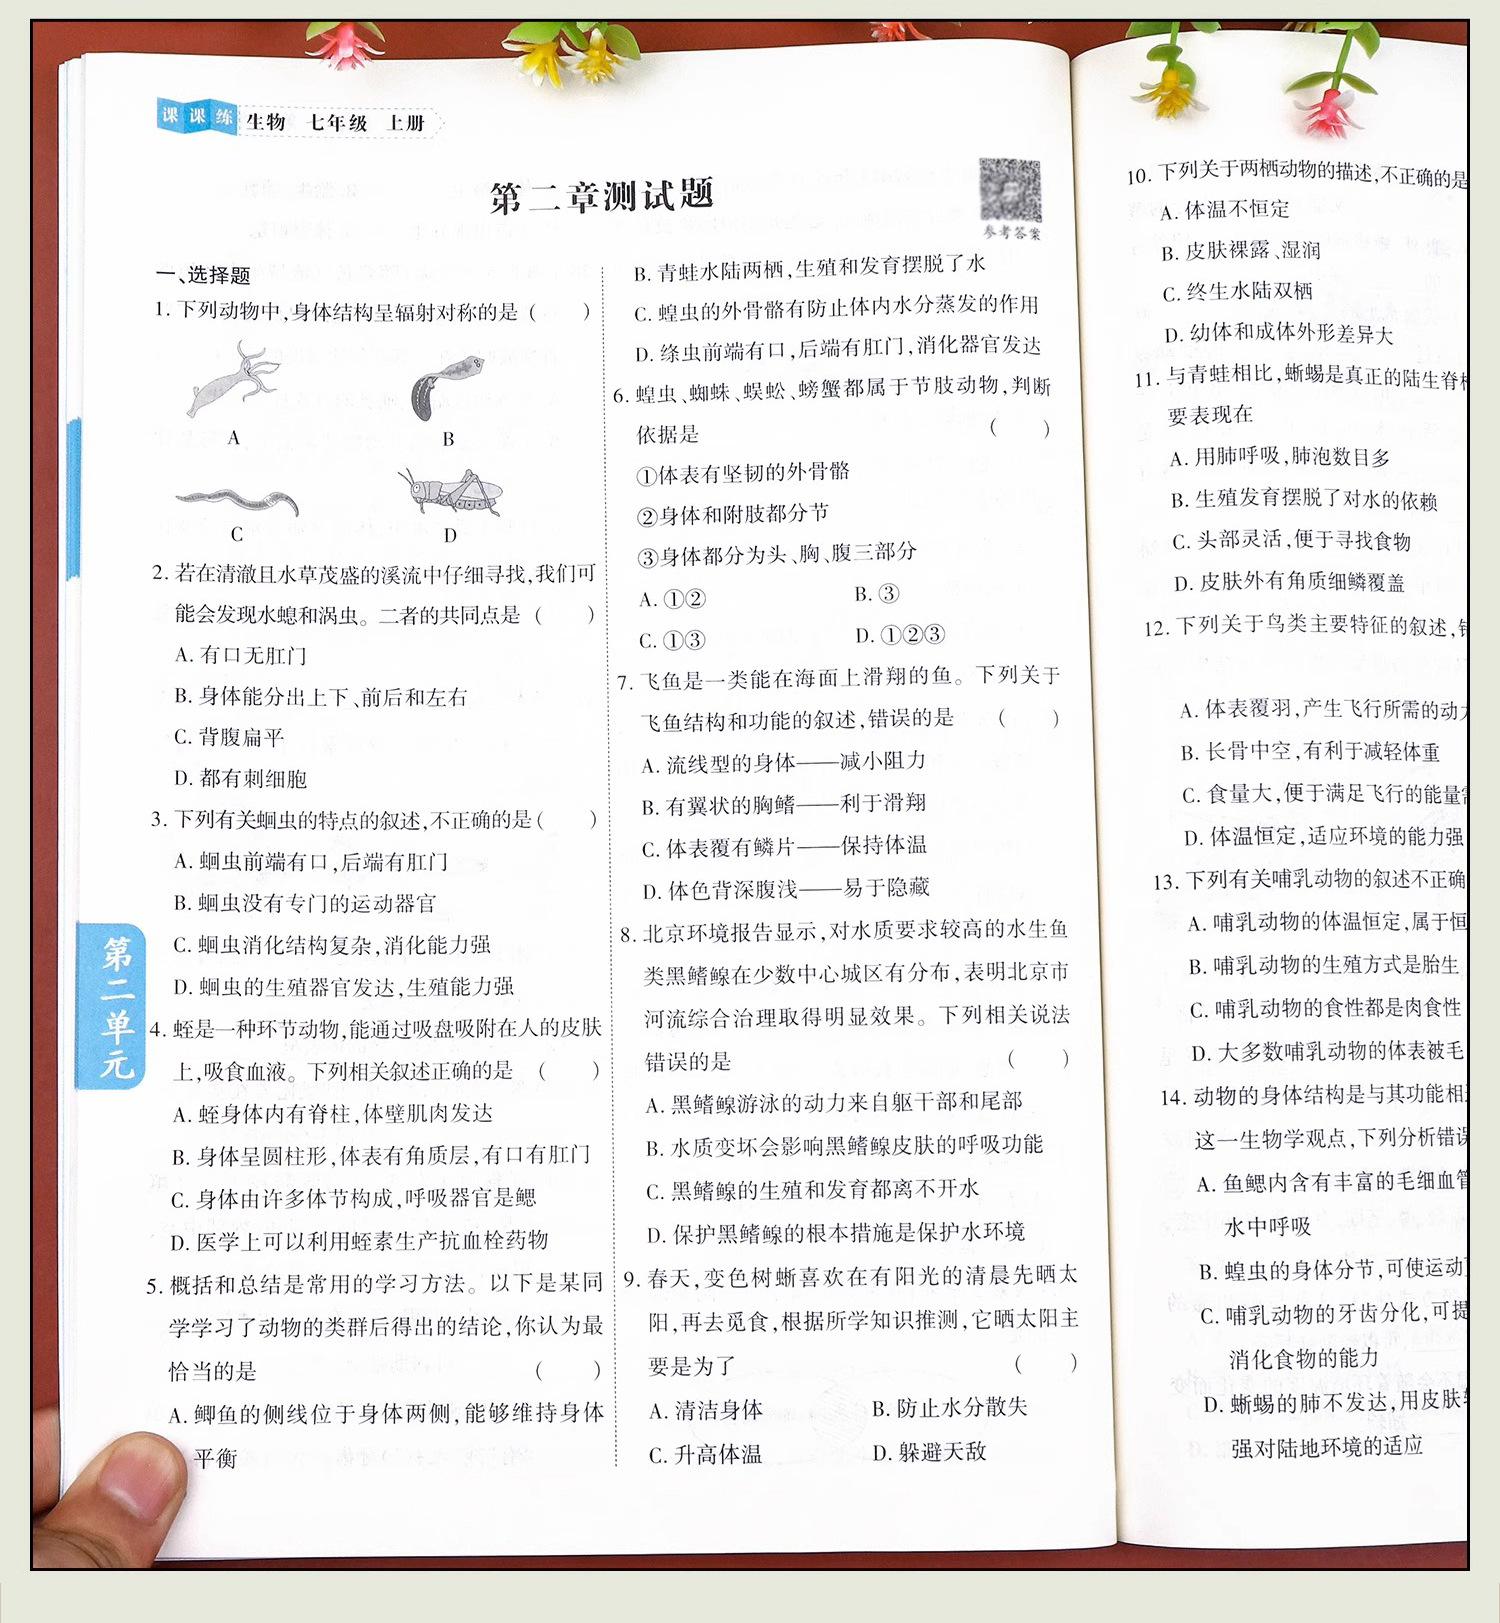 课课练 生物 七年级 上册
第二章测试题
参考答案
一、选择题
1. 下列动物中,身体结构呈辐射对称的是 (  )
A
B
C
D
2. 若在清澈且水草茂盛的溪流中仔细寻找,我们可
能会发现水螅和涡虫。二者的共同点是 (  )
A. 有口无肛门
B. 身体能分出上下、前后和左右
C. 背腹扁平
D. 都有刺细胞
3. 下列有关蛔虫的特点的叙述,不正确的是 (  )
A. 蛔虫前端有口,后端有肛门
B. 蛔虫没有专门的运动器官
C. 蛔虫消化结构复杂,消化能力强
D. 蛔虫的生殖器官发达,生殖能力强
4. 蛭是一种环节动物,能通过吸盘吸附在人的皮肤
上,吸食血液。下列相关叙述正确的是 (  )
A. 蛭身体内有脊柱,体壁肌肉发达
B. 身体呈圆柱形,体表有角质层,有口有肛门
C. 身体由许多体节构成,呼吸器官是鳃
D. 医学上可以利用蛭素生产抗血栓药物
5. 概括和总结是常用的学习方法。以下是某同
学学习了动物的类群后得出的结论,你认为最
恰当的是 (  )
A. 鲫鱼的侧线位于身体两侧,能够维持身体
平衡
B. 青蛙水陆两栖,生殖和发育摆脱了水
C. 蝗虫的外骨骼有防止体内水分蒸发的作用
D. 绦虫前端有口,后端有肛门,消化器官发达
6. 蝗虫、蜘蛛、蜈蚣、螃蟹都属于节肢动物,判断
依据是 (  )
①体表有坚韧的外骨骼
②身体和附肢都分节
③身体都分为头、胸、腹三部分
A. ①② B. ③
C. ①③ D. ①②③
7. 飞鱼是一类能在海面上滑翔的鱼。下列关于
飞鱼结构和功能的叙述,错误的是 (  )
A. 流线型的身体——减小阻力
B. 有翼状的胸鳍——利于滑翔
C. 体表覆有鳞片——保持体温
D. 体色背深腹浅——易于隐藏
8. 北京环境报告显示,对水质要求较高的水生鱼
类黑鳍鳈在少数中心城区有分布,表明北京市
河流综合治理取得明显效果。下列相关说法
错误的是 (  )
A. 黑鳍鳈游泳的动力来自躯干部和尾部
B. 水质变坏会影响黑鳍鳈皮肤的呼吸功能
C. 黑鳍鳈的生殖和发育都离不开水
D. 保护黑鳍鳈的根本措施是保护水环境
9. 春天,变色树蜥喜欢在有阳光的清晨先晒太
阳,再去觅食,根据所学知识推测,它晒太阳主
要是为了 (  )
A. 清洁身体 B. 防止水分散失
C. 升高体温 D. 躲避天敌
第二单元
10. 下列关于两栖动物的描述,不正确的是
A. 体温不恒定
B. 皮肤裸露、湿润
C. 终生水陆双栖
D. 幼体和成体外形差异大
11. 与青蛙相比,蜥蜴是真正的陆生脊
要表现在
A. 用肺呼吸,肺泡数目多
B. 生殖发育摆脱了对水的依赖
C. 头部灵活,便于寻找食物
D. 皮肤外有角质细鳞覆盖
12. 下列关于鸟类主要特征的叙述,
A. 体表覆羽,产生飞行所需的动
B. 长骨中空,有利于减轻体重
C. 食量大,便于满足飞行的能量
D. 体温恒定,适应环境的能力强
13. 下列有关哺乳动物的叙述不正确
A. 哺乳动物的体温恒定,属于恒
B. 哺乳动物的生殖方式是胎生
C. 哺乳动物的食性都是肉食性
D. 大多数哺乳动物的体表被毛
14. 动物的身体结构是与其功能相
这一生物学观点,下列分析错
A. 鱼鳃内含有丰富的毛细血管
水中呼吸
B. 蝗虫的身体分节,可使运动
C. 哺乳动物的牙齿分化,可提
消化食物的能力
D. 蜥蜴的肺不发达,用皮肤
强对陆地环境的适应